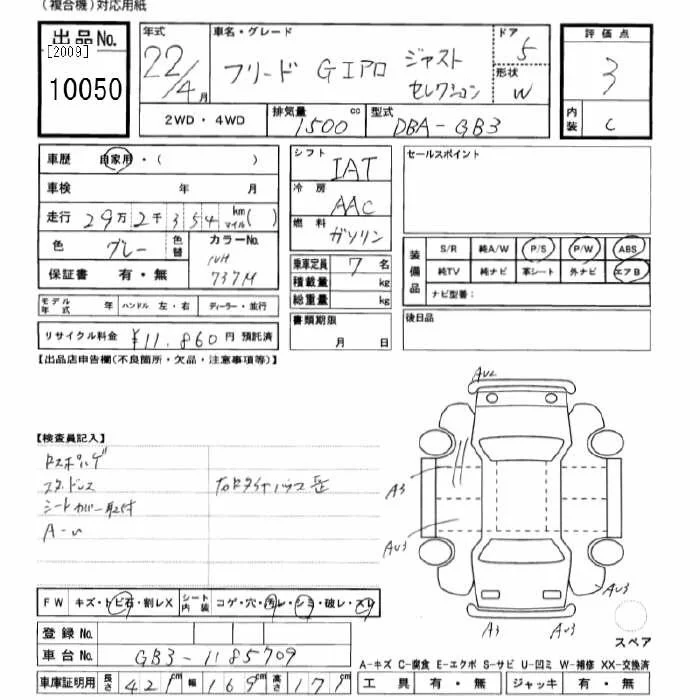 (複合機)対応用紙
出品No.
[2009]
10050
年式
22/4月
車名・グレード
フリード GIPロ ジャスト
セレクション
ドア
5
形状
W
評価点
3
内装
C
2WD・4WD
排気量 1500 cc
型式 DBA-GB3
車歴 自家用・( )
車検 年 月
走行 29万2千354 km マイル( )
色 グレー 色替
カラーNo.
NH
737M
保証書 有・無
モデル年式 年 ハンドル 左・右 ディーラー・並行
リサイクル料金 ¥11,860円 預託済
シフト
IAT
冷房
AAC
燃料
ガソリン
乗車定員 7 名
積載量 kg
総重量 kg
書類期限
月 日
セールスポイント
装備品
S/R 純A/W P/S P/W ABS
純TV 純ナビ 革シート 外ナビ エアB
ナビ型番:
後日品
【出品店申告欄(不良箇所・欠品・注意事項等)】
【検査員記入】
スタッドレス
シートカバー取付
FW キズ・トビ石・割レX
シート内装 コゲ・穴・汚レ・シミ・破レ・スレ
登録No.
車台No. GB3-1185709
車庫証明用 長さ 421cm 幅 169cm 高さ 171cm
AU2
A3
AU3
AU3
A3
AU3
スペア
A-キズ C-腐食 E-エクボ S-サビ U-凹ミ W-補修 XX-交換済
工具 有・無 ジャッキ 有・無